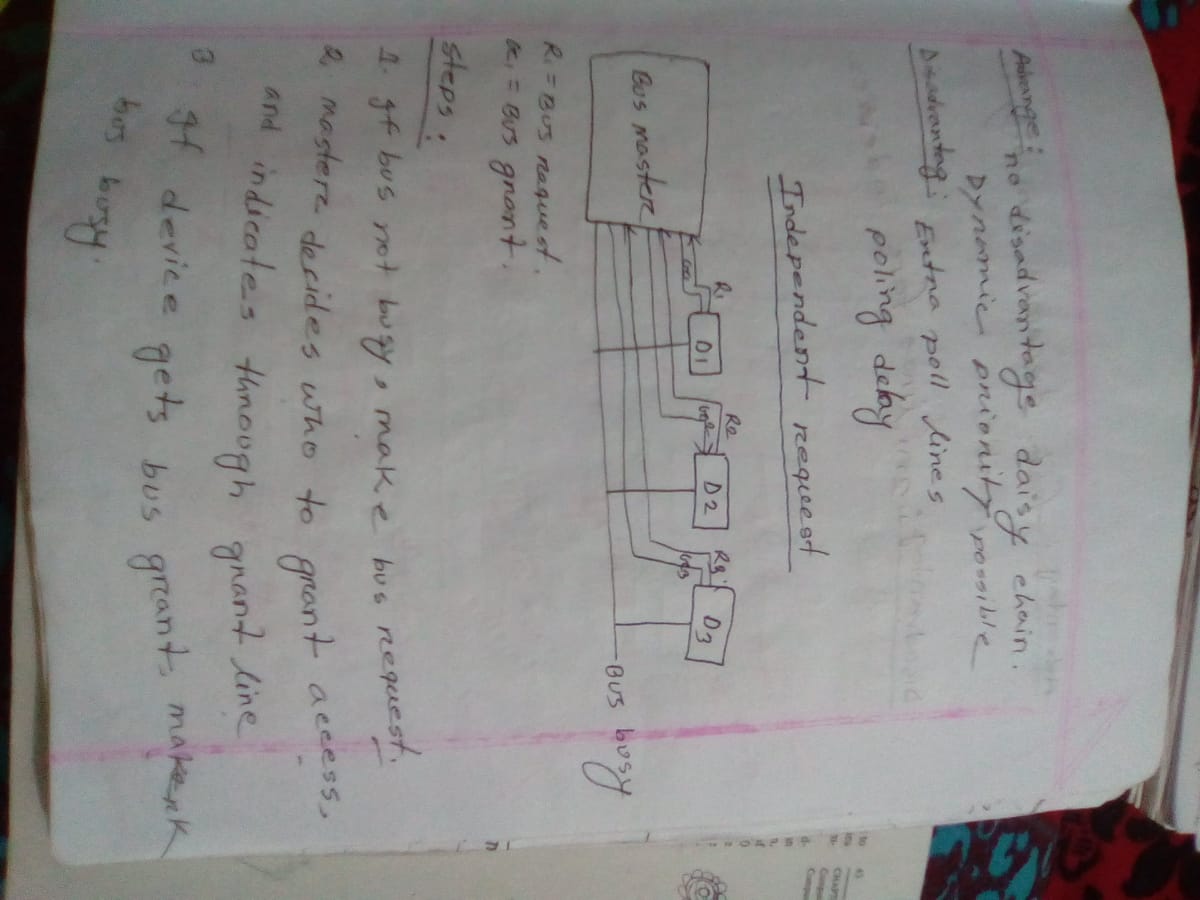 Advange:
no disadvantage daisy chain.
Dynamic priority possible
Disadvantag:
Extra poll lines
poling delay
Independent request
R1 D1 R2 G2 D2 R3 G3 D3
Bus master
BUS busy
R1 = BUS request.
G1 = BUS grant.
steps:
1. If bus not busy, make bus request.
2, master decides who to grant access,
and indicates through grant line
3 If device gets bus grant,
bus busy.